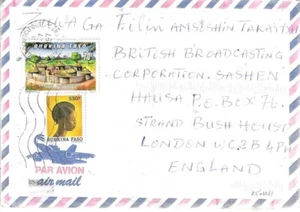 GA Filin AMSESHIN TAKAITA
BRITISH BROADCASTING
CORPORATION. SASHEN
HAUSA P.O. BOX 76.
STRAND BUSH HOUSE
LONDON WC2B 4PH
ENGLAND
BURKINA FASO
BURKINA FASO
PAR AVION
air mail